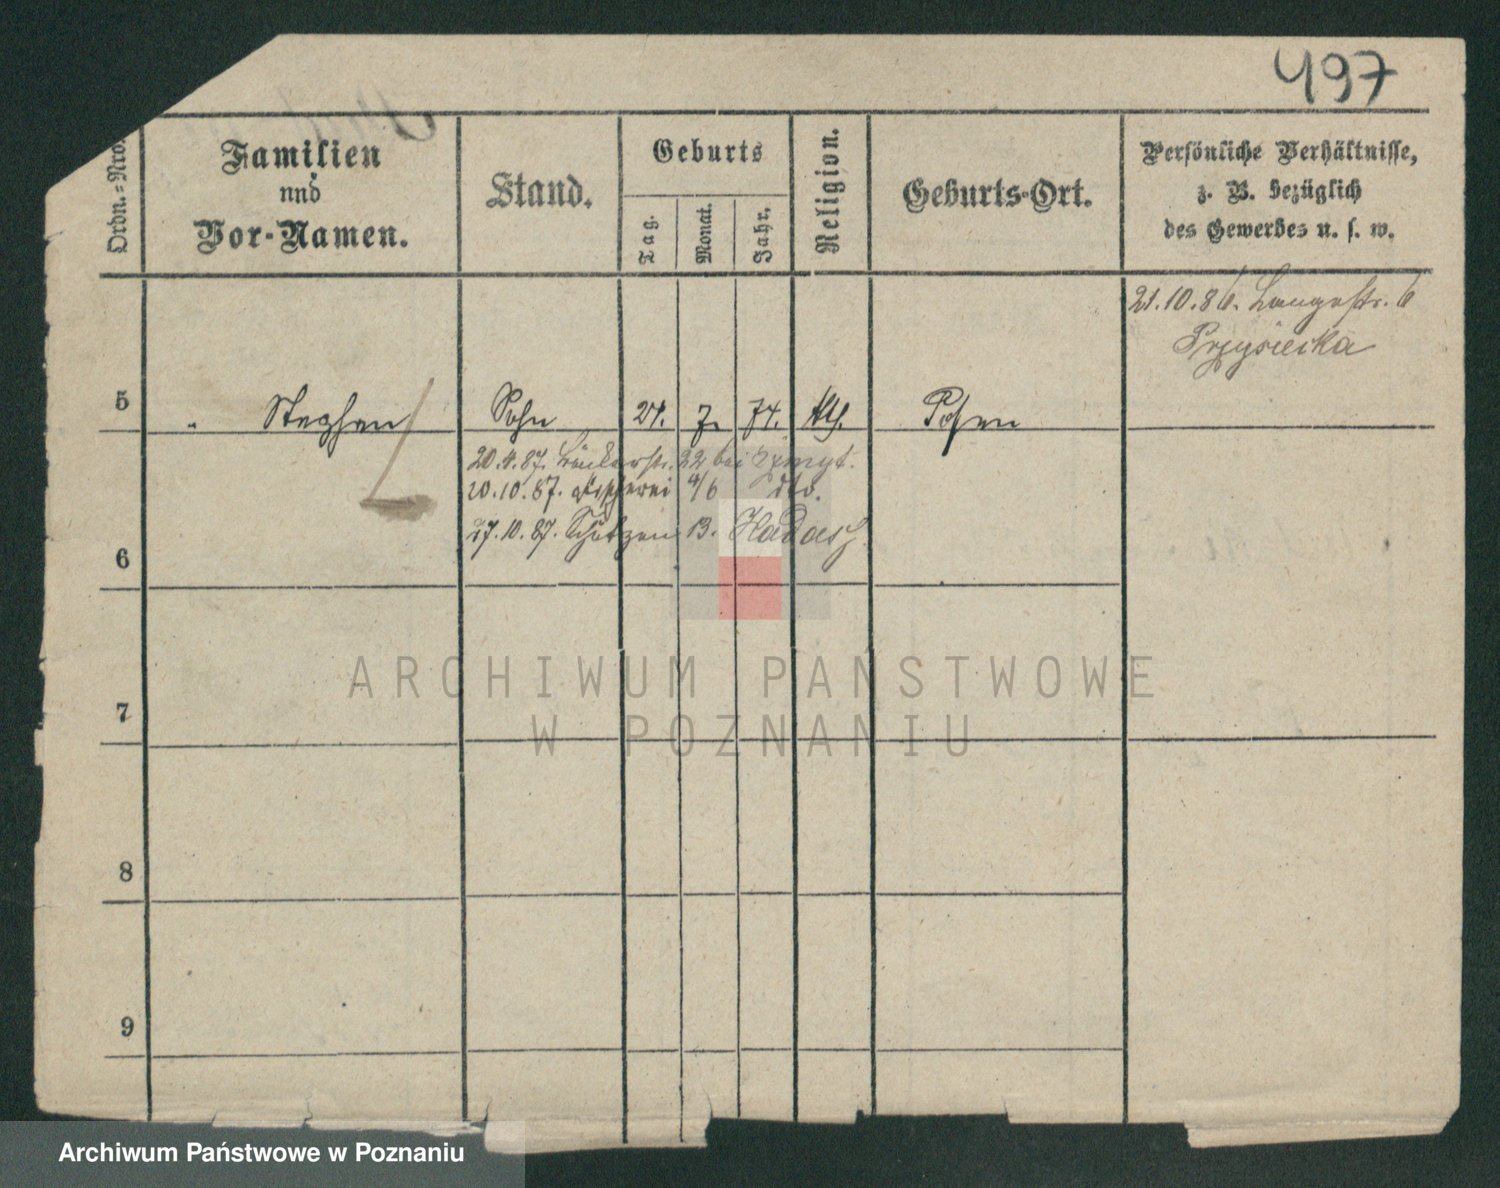 497
Ordn.-Nro.
Familien
und
Vor-Namen.
Stand.
Geburts
Tag.
Monat.
Jahr.
Religion.
Geburts-Ort.
Persönliche Verhältnisse,
z. B. bezüglich
des Gewerbes u. s. w.
21.10.86. Langestr. 6
Przysiecka
5 " Stephan Sohn 21. 7. 74. kth. Posen
20.4.87. Bäckerstr. 22 bei
20.10.87. 4/6 dto.
17.10.87. Schützen 13. Kadasz
6
7
8
9
ARCHIWUM PAŃSTWOWE
W POZNANIU
Archiwum Państwowe w Poznaniu